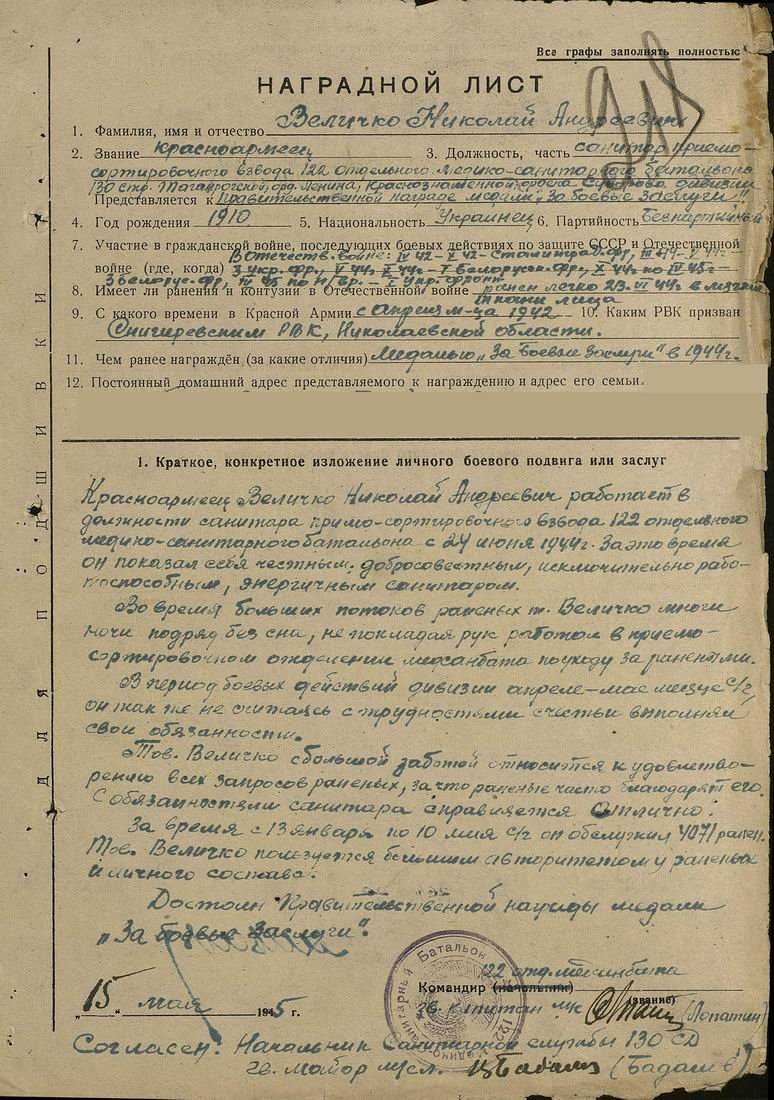 Все графы заполнять полностью
НАГРАДНОЙ ЛИСТ
1. Фамилия, имя и отчество Величко Николай Андреевич
2. Звание красноармеец 3. Должность, часть санитар приемо-
сортировочного взвода 122 отдельного медико-санитарного батальона
130 стр. Таганрогской, орд. Ленина, Краснознаменной ордена Суворова дивизии
Представляется к Правительственной награде медали „За боевые заслуги"
4. Год рождения 1910 5. Национальность Украинец 6. Партийность беспартийный
7. Участие в гражданской войне, последующих боевых действиях по защите СССР и Отечественной
В отечеств. войне: IV 42 - X 42 - Сталинград. фр,
войне (где, когда) 3 укр. фр., V 44г - I белорусск. фр., X 44г по IV 45г -
3 белорус. фр, IV 45 по н/вр. - I укр. фронт
8. Имеет ли ранения и контузии в Отечественной войне ранен легко 23. VI 44г в мягкие
ткани лица
9. С какого времени в Красной Армии с апреля м-ца 1942 10. Каким РВК призван
Снигиревским РВК, Николаевской области.
11. Чем ранее награждён (за какие отличия) Медалью „За боевые заслуги" в 1944г.
12. Постоянный домашний адрес представляемого к награждению и адрес его семьи.
1. Краткое, конкретное изложение личного боевого подвига или заслуг
Красноармеец Величко Николай Андреевич работает в
должности санитара примо-сортировочного взвода 122 отдельного
медико-санитарного батальона с 24 июня 1944г. За это время
он показал себя честным, добросовестным, исключительно рабо-
тоспособным, энергичным санитаром.
Во время больших потоков раненых т. Величко многи
ночи подряд без сна, не покладая рук работал в приемо-
сортировочном отделении медсанбата по уходу за ранеными.
В период боевых действий дивизии апреле-мае месяце с/г,
он так же не считаясь с трудностями с честью выполнял
свои обязанности.
Тов. Величко с большой заботой относится к удовлетво-
рению всех запросов раненых, за что раненые часто благодарят его.
С обязанностями санитара справляется отлично.
За время с 13 января по 10 мая с/г он обслужил 4071 ранен.
Тов. Величко пользуется большим авторитетом у раненых
и личного состава.
Достоин Правительственной награды медали
„За боевые заслуги".
122 отд. медсанбата
Командир (начальник)
гв. капитан м/с (звание) (Лопатин)
„15" мая 1945 г.
Согласен: Начальник Санитарной службы 130 СД
гв. майор м/сл. (Бадаев)
ДЛЯ ПОДШИВКИ